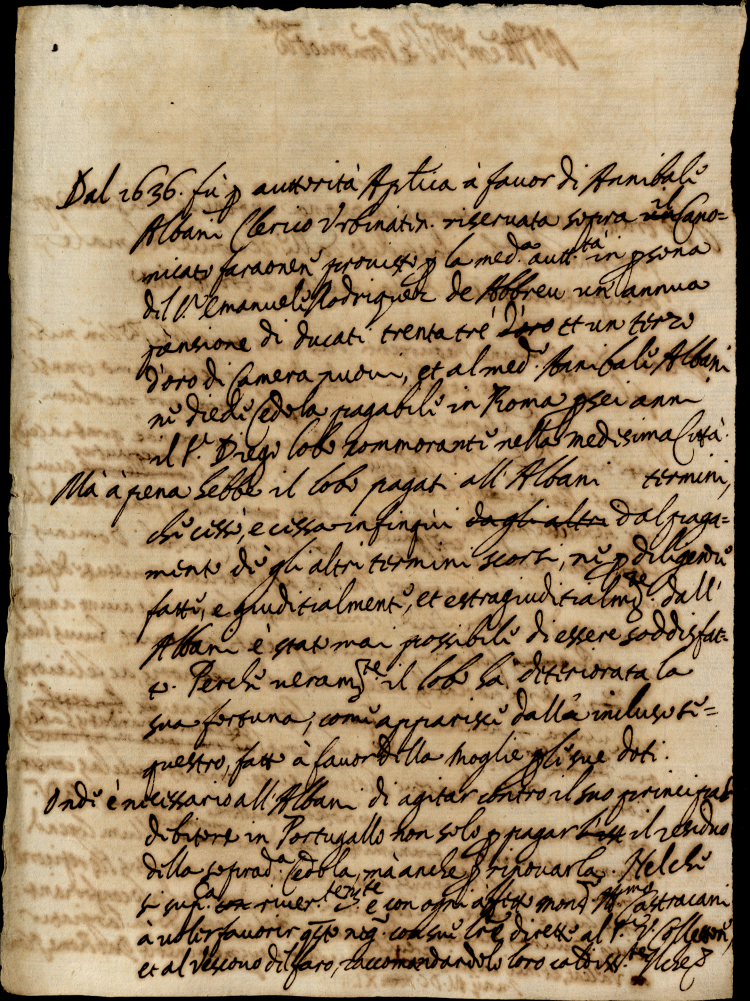 Dal 1636. fù p autterità Aplica à favor di Annibale
Albani Clerico Urbinaten. riservata sopra un Cano=
nicato faraonen provisto p la med.a autt.tà in psona
del S.r Emanuele Rodriguez de Abbreu un annua
pensione di ducati trenta tré d'oro et un terzo
d'oro di Camera nuovi, et al med.o Annibale Albani
ne diede Cedola pagabile in Roma p sei anni
il S.r Diego lobo commorante nella medesima Città.
Mà à pena hebbe il lobo pagati all'Albani termini,
che cessò, e cessa infin qui dagli altri dal paga=
mento de gli altri termini scorsi, ne p diligenze
fatte, e giuditialmente, et estragiuditialm.te dall'
Albani è stato mai possibile di essere soddisfat=
to. Perche veram.te il lobo hà deteriorata la
sua fortuna, come apparisce dall'incluso se=
questro, fatto à favor della moglie p le sue doti.
Onde è necessario all'Albani di agitar contro il suo principal
debitore in Portugallo non solo p pagar il residuo
della soprad.a Cedola, mà anche p rinovarla. Nel che
si sup.ca river.te e con ogni affetto mons.r Ill.mo Castracani
à voler favorir q.sto neg.o con sue lre dirette al S.r Collettore,
et al Vescovo del faro, raccomandandolo loro caldiss.te